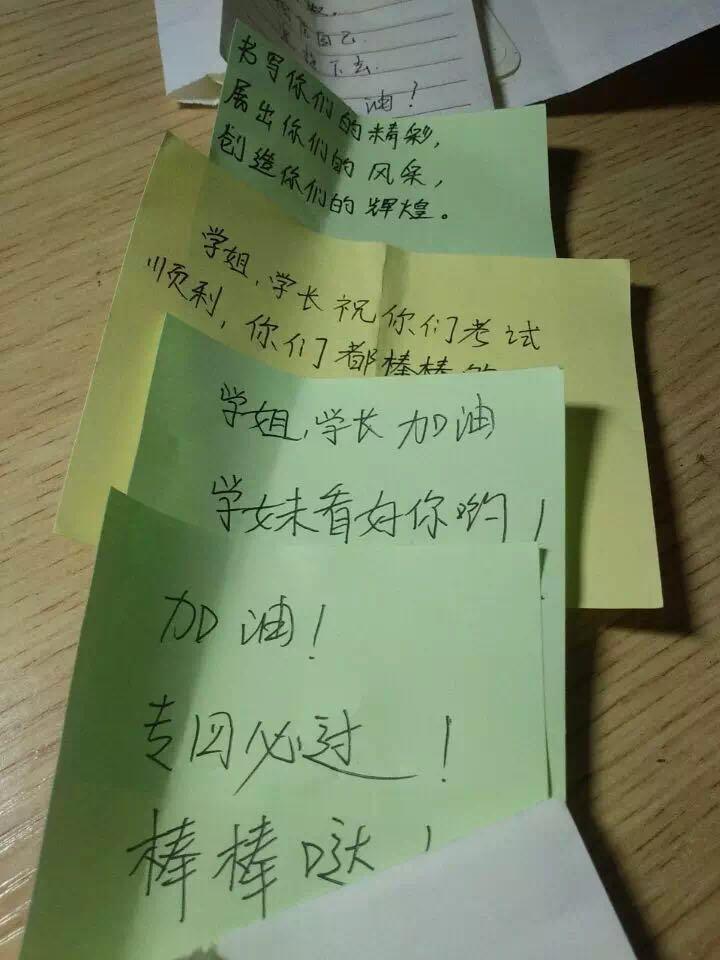 自己
下去
油！
书写你们的精彩，
展出你们的风采，
创造你们的辉煌。
学姐，学长祝你们考试
顺利，你们都棒棒
学姐，学长加油
学妹看好你哟！
加油！
专四必过！
棒棒哒！